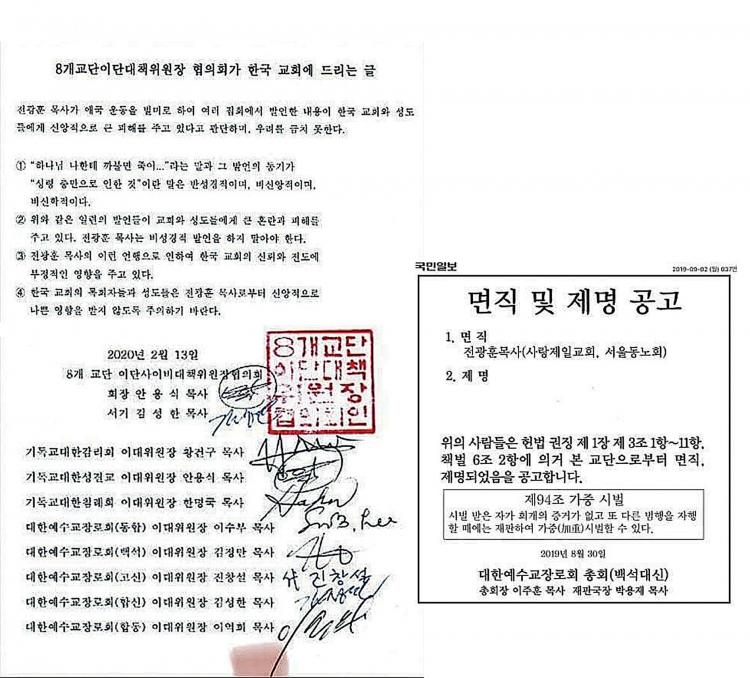 8개교단이단대책위원장 협의회가 한국 교회에 드리는 글
전광훈 목사가 애국 운동을 빌미로 하여 여러 집회에서 발언한 내용이 한국 교회와 성도
들에게 신앙적으로 큰 피해를 주고 있다고 판단하며, 우려를 금치 못한다.
① "하나님 나한테 까불면 죽어..."라는 말과 그 발언의 동기가
"성령 충만으로 인한 것"이란 말은 반성경적이며, 비신앙적이며,
비신학적이다.
② 위와 같은 일련의 발언들이 교회와 성도들에게 큰 혼란과 피해를
주고 있다. 전광훈 목사는 비성경적 발언을 하지 말아야 한다.
③ 전광훈 목사의 이런 언행으로 인하여 한국 교회의 신뢰와 전도에
부정적인 영향을 주고 있다.
④ 한국 교회의 목회자들과 성도들은 전광훈 목사로부터 신앙적으로
나쁜 영향을 받지 않도록 주의하기 바란다.
2020년 2월 13일
8개 교단 이단사이비대책위원장협의회
회장 안용식 목사
서기 김성한 목사
8개교단
이단대책
위원장
협의회인
기독교대한감리회 이대위원장 황건구 목사
기독교대한성결교 이대위원장 안용식 목사
기독교대한침례회 이대위원장 한명국 목사
대한예수교장로회(통합) 이대위원장 이수부 목사
대한예수교장로회(백석) 이대위원장 김정만 목사
대한예수교장로회(고신) 이대위원장 진창설 목사 진창설
대한예수교장로회(합신) 이대위원장 김성한 목사
대한예수교장로회(합동) 이대위원장 이억희 목사
국민일보 2019-09-02 (월) 037면
면직 및 제명 공고
1. 면 직
전광훈목사(사랑제일교회, 서울동노회)
2. 제 명
위의 사람들은 헌법 권징 제1장 제3조 1항~11항,
책벌 6조 2항에 의거 본 교단으로부터 면직,
제명되었음을 공고합니다.
제94조 가중 시벌
시벌 받은 자가 회개의 증거가 없고 또 다른 범행을 자행
할 때에는 재판하여 가중(加重)시벌할 수 있다.
2019년 8월 30일
대한예수교장로회 총회(백석대신)
총회장 이주훈 목사 재판국장 박용제 목사